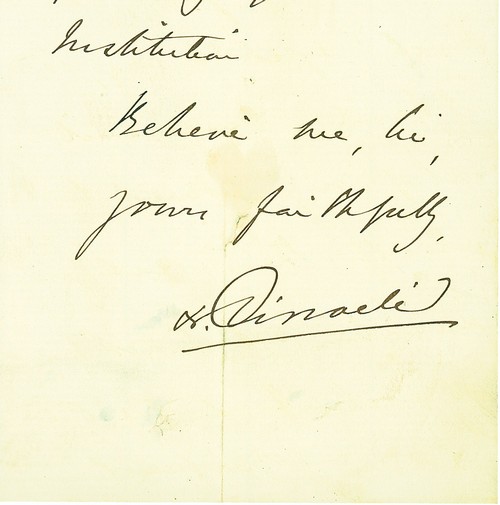 Institution
Believe me, Sir,
yours faithfully,
B. Disraeli